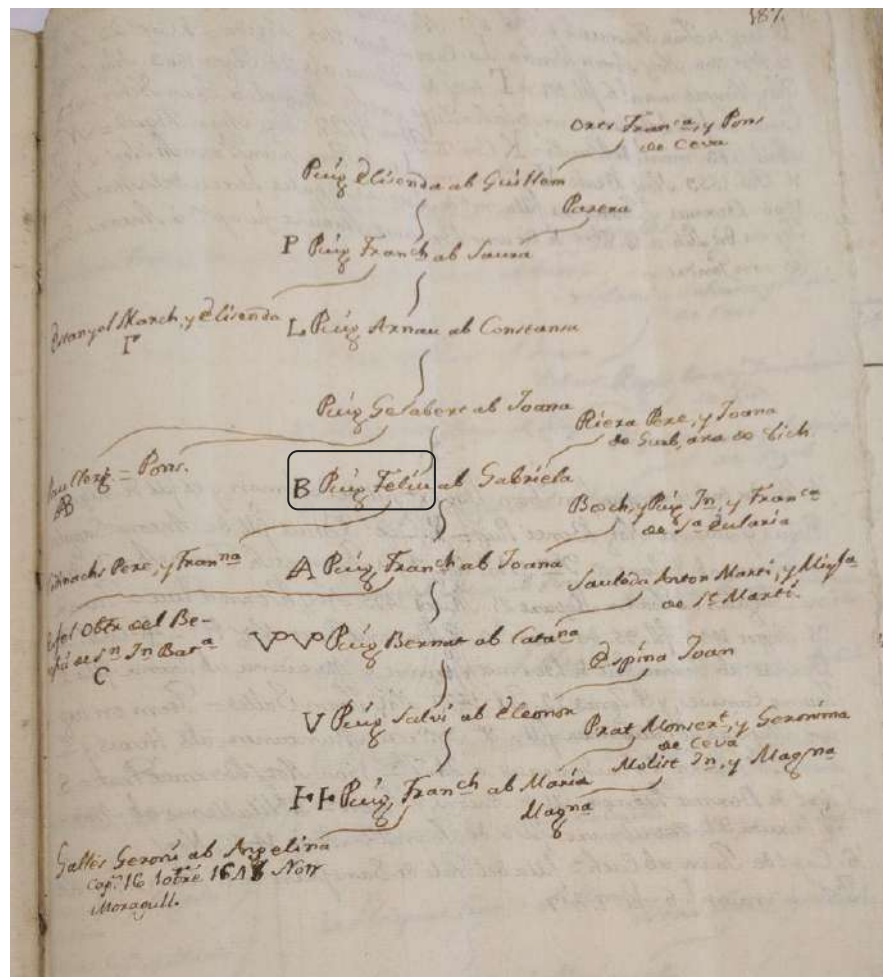 187.
Oxes Fran^ca, y Pons
de Ceva
Púig Elisenda ab Guillem
Parera
P Púig Fran^ch ab Saura
Estanyol March, y Elisenda
Γ
L Púig Arnau ab Constansa
Púig Gelabert ab Joana
Riera Pere, y Joana
de Gurb, ara de Vich.
= Pons.
AB
B Púig Felíu ab Gabriela
Bosch, y Púig Jn, y Fran^ca
de S^a Eularia
Pere, y Fran^na
A Púig Fran^ch ab Joana
Sauleda Anton Martí, y
de S^t Martí.
Obtr del Be-
de S^n Jn Bat^a
C
VV Púig Bernat ab Cata^na
Espina Joan
V Púig Salvi ab Eleonor
Prat Monser^t, y Geronima
de Ceva
Molist Jn, y Magna
H Púig, Fran^ch ab María
Mag^na
Galles Geroni ab Angelina
Cap^s 16 1648 Not^r
Moragull.